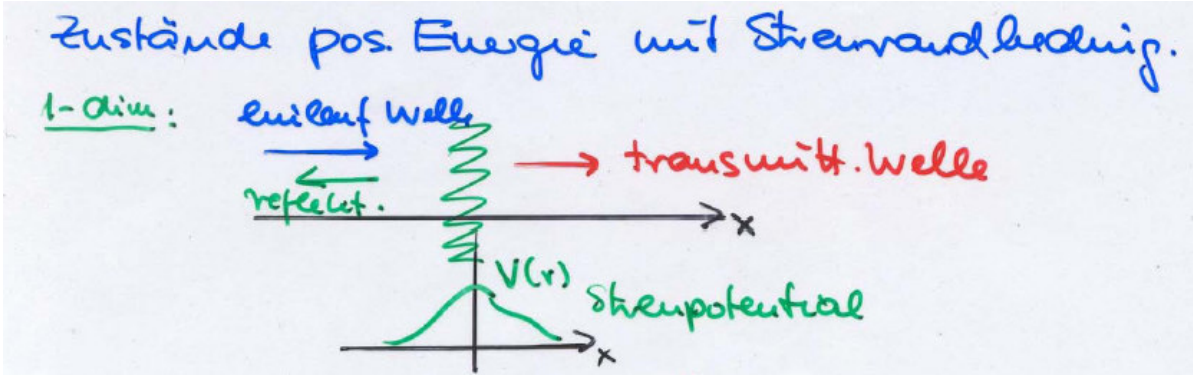 Zustände pos. Energie mit Streurandbeding.
1-dim: einlauf Welle
transmitt. Welle
reflekt.
x
V(r)
Streupotential
x